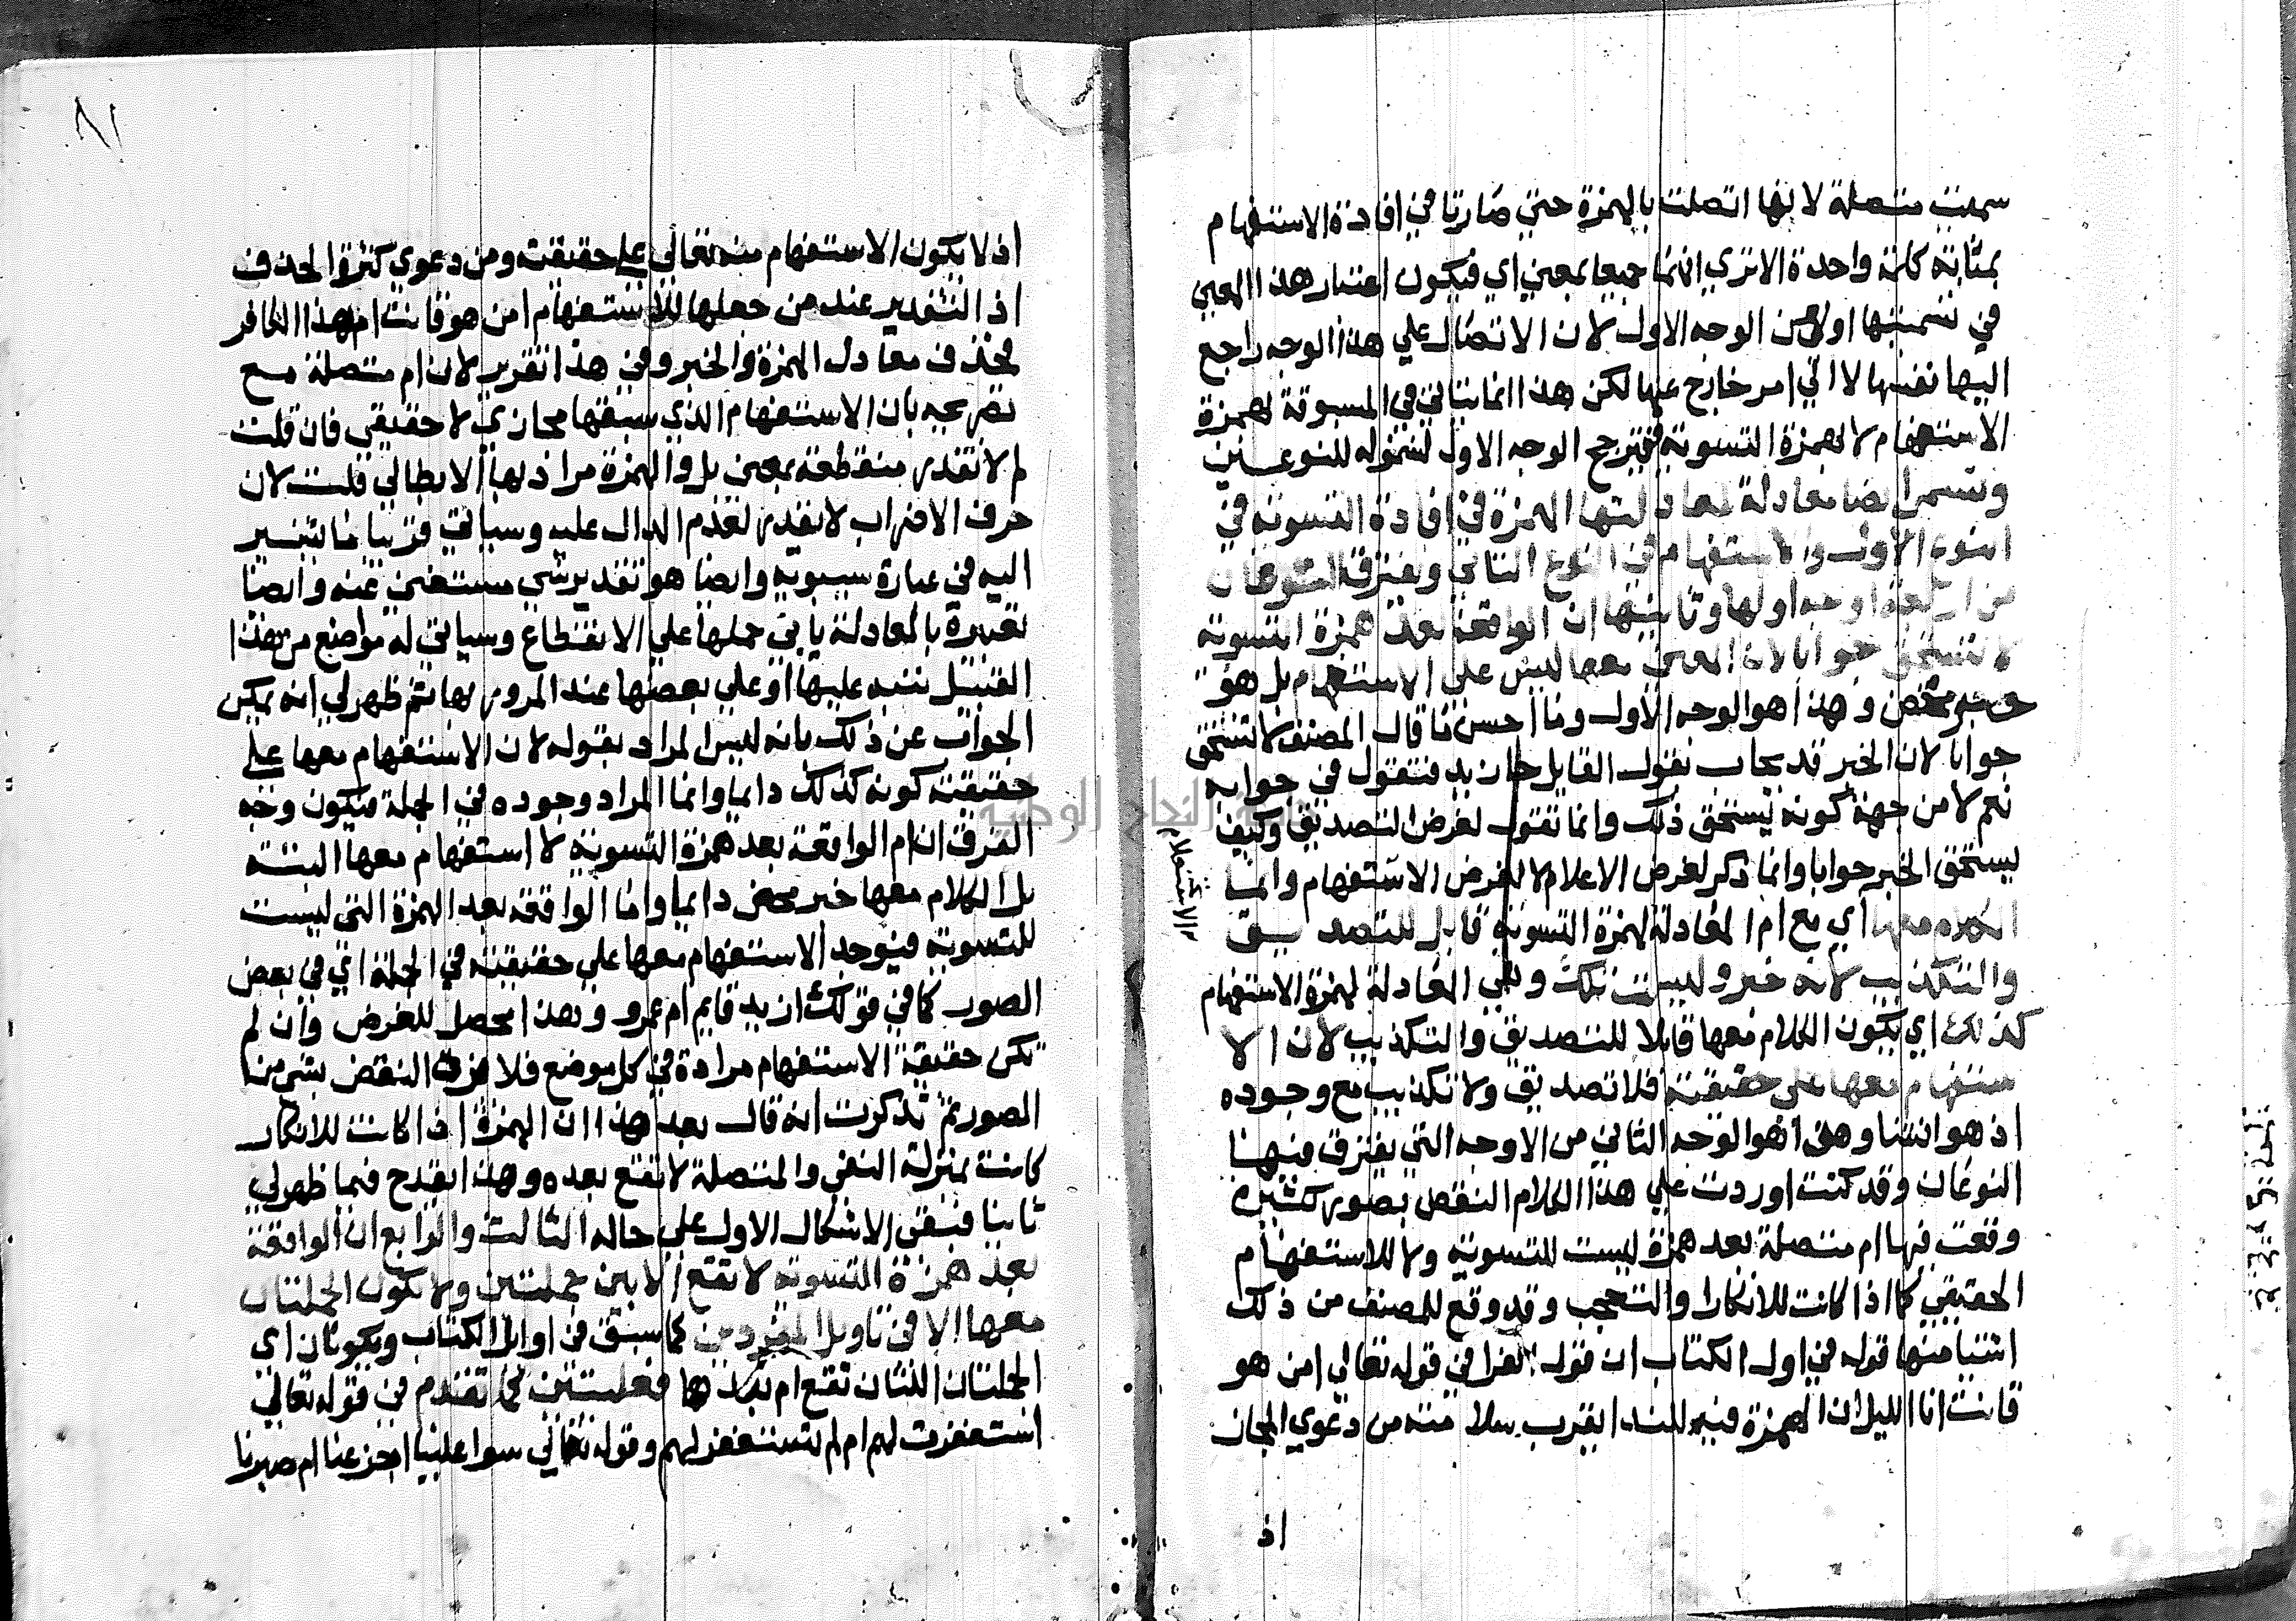 سميت متصلة لانها اتصلت بالهمزة حتي صارتا في افادة الاستفهام
بمثابة كلمة واحدة الا تري انهما جميعا بمعني اي فيكون اعتبار هذا المعني
في تسميتها اولي من الوجه الاول لان الاتصال علي هذا الوجه راجع
اليها نفسها لا الي امر خارج عنها لكن هذا انما يتاتي في المسبوقة بهمزة
الاستفهام لا بهمزة التسوية فيترجح الوجه الاول لشموله للنوعين
وتسمي ايضا معادلة لمعادلتها الهمزة في افادة التسوية في
النوع الاول والاستفهام في النوع الثاني ويفترق النوعان
من اربعة اوجه اولها وثانيها ان الواقعة بعد همزة التسوية
لا تستحق جوابا لان المعني معها ليس علي الاستفهام بل هو
خبر محض وهذا هو الوجه الاول وما احسن ما قال المصنف لا تستحق
جوابا لان الخبر قد يجاب بقول القايل جا زيد فتقول في جوابه
نعم لا من جهة كونه يستحق ذلك وانما تقول لغرض التصديق وكيف
يستحق الخبر جوابا وانما ذكر لغرض الاعلام لا لغرض الاستفهام وانما
الكلام معها اي مع ام المعادلة لهمزة التسوية قابل للتصديق
والتكذيب لانه خبر وليست تلك وهي المعادلة لهمزة الاستفهام
كذلك اي يكون الكلام معها قابلا للتصديق والتكذيب لان الا
ستفهام معها علي حقيقته فلا تصديق ولا تكذيب مع وجوده
اذ هو انشا وهذا هو الوجه الثاني من الاوجه التي يفترق منها
النوعان وقد كنت اوردت علي هذا الكلام النقض بصور كثيرة
وقعت فيها ام متصلة بعد همزة ليست للتسوية ولا للاستفهام
الحقيقي كما اذا كانت للانكار او التعجب وقد وقع للمصنف من ذلك
اشيا منها قوله في اول الكتاب ان قول الفرا في قوله تعالي امن هو
قانت انا الليل ان الهمزة فيه للندا يقرب سلامته من دعوي المجاز
اذ
اذ لا يكون الاستفهام منه تعالي علي حقيقته ومن دعوي كثرة الحذف
اذ التقدير عند من جعلها للاستفهام امن هو قانت ام هذا الكافر
فحذف معادل الهمزة والخبر وفي هذا تقرير لان ام متصلة مع
تصريحه بان الاستفهام الذي سبقها مجازي لا حقيقي فان قلت
لم لا تقدر منقطعة بمعني بل والهمزة مرادا بها الابطالي قلت لان
حرف الاضراب لا يقدر لعدم الدال عليه وسياتي قريبا ما يشير
اليه في عبارة سيبويه وايضا هو تقدير شي مستغني عنه وايضا
تعبيره بالمعادلة يابي حملها علي الانقطاع وسياتي له مواضع من هذا
القبيل ننبه عليها او علي بعضها عند المرور بها ثم ظهر لي انه يمكن
الجواب عن ذلك بانه ليس المراد بقوله لان الاستفهام معها علي
حقيقته كونه كذلك دايما وانما المراد وجوده في الجملة فيكون وجه
الفرق ان ام الواقعة بعد همزة التسوية لا استفهام معها البتة
بل الكلام معها خبر محض دايما واما الواقعة بعد الهمزة التي ليست
للتسوية فيوجد الاستفهام معها علي حقيقته في الجملة اي في بعض
الصور كما في قولك ازيد قايم ام عمرو وبهذا يحصل الغرض وان لم
تكن حقيقة الاستفهام مرادة في كل موضع فلا فرق النقض بشي من
الصور ثم تذكرت انه قال بعد هذا ان الهمزة اذا كانت للانكار
كانت بمنزلة النفي والمتصلة لا تقع بعده وهذا يقدح فيما ظهر لي
ثانيا فبقي الاشكال الاول علي حاله الثالث والرابع ان الواقعة
بعد همزة التسوية لا تقع الا بين جملتين ولا تكون الجملتان
معها الا في تاويل المفردين كما سبق في اوايل الكتاب وتكونان اي
الجملتان اللتان تقع ام بعدها فعليتين كما تقدم في قوله تعالي
استغفرت لهم ام لم تستغفر لهم وقوله تعالي سوا علينا اجزعنا ام صبرنا